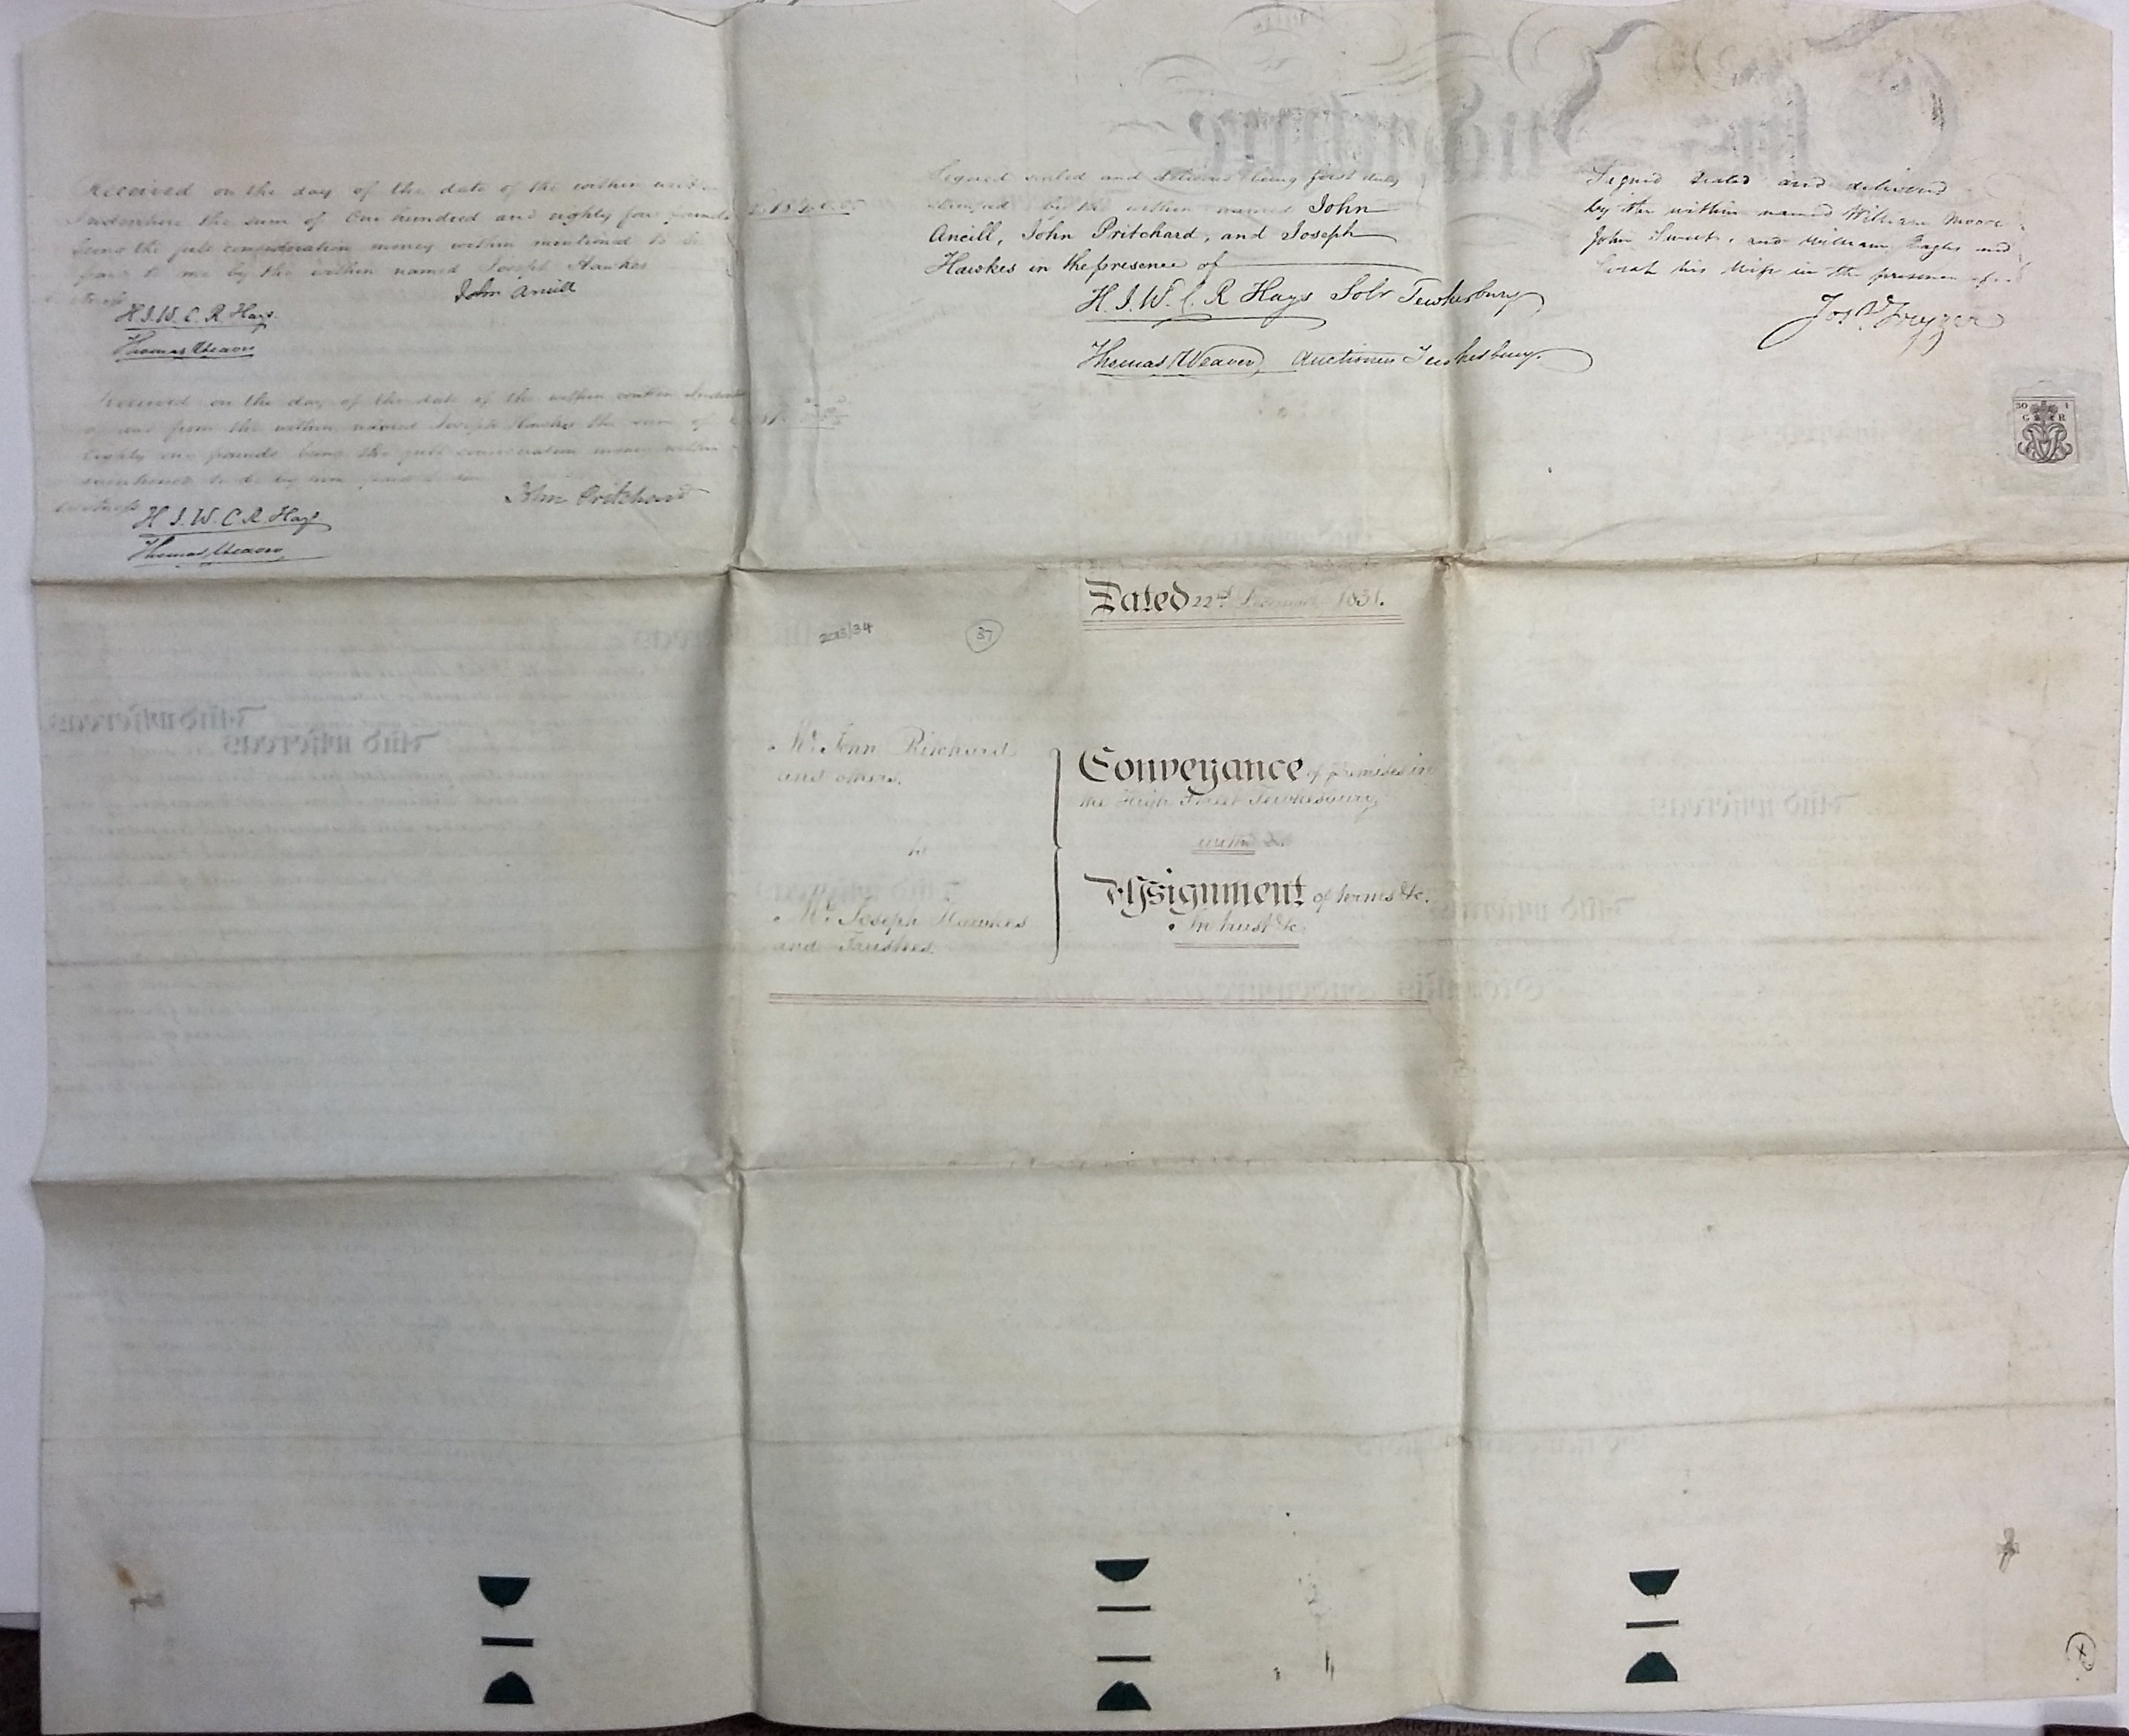 Received on the day of the date of the within written
Indenture the sum of One hundred and eighty four pounds
being the full consideration money within mentioned to be
paid to me by the within named Joseph Hawkes
John Ancill
H. I. W. C. R. Hays.
Thomas Weaver
Received on the day of the date of the within written Indenture
from the within named Joseph Hawkes the sum of
Eighty one pounds being the full consideration money within
mentioned to be by him paid to me
John Pritchard
Witness
H I. W. C. R. Hays
Thomas Weaver
Signed sealed and delivered being first duly
stamped by the within named John
Ancill, John Pritchard, and Joseph
Hawkes in the presence of
H. I. W. C. R Hays Solr Tewkesbury
Thomas Weaver Auctioneer Tewkesbury.
Signed Sealed and delivered
by the within named William Moore
John Sweet, and William Eagles and
Sarah his Wife in the presence of
30 1
G R
Dated 22nd December 1831.
2013/34
37
Mr. John Pritchard
and others.
to
Mr. Joseph Hawkes
and Trustees.
Conveyance of premises in
the High Street Tewkesbury
with an
Assignment of terms &c.
In trust &c